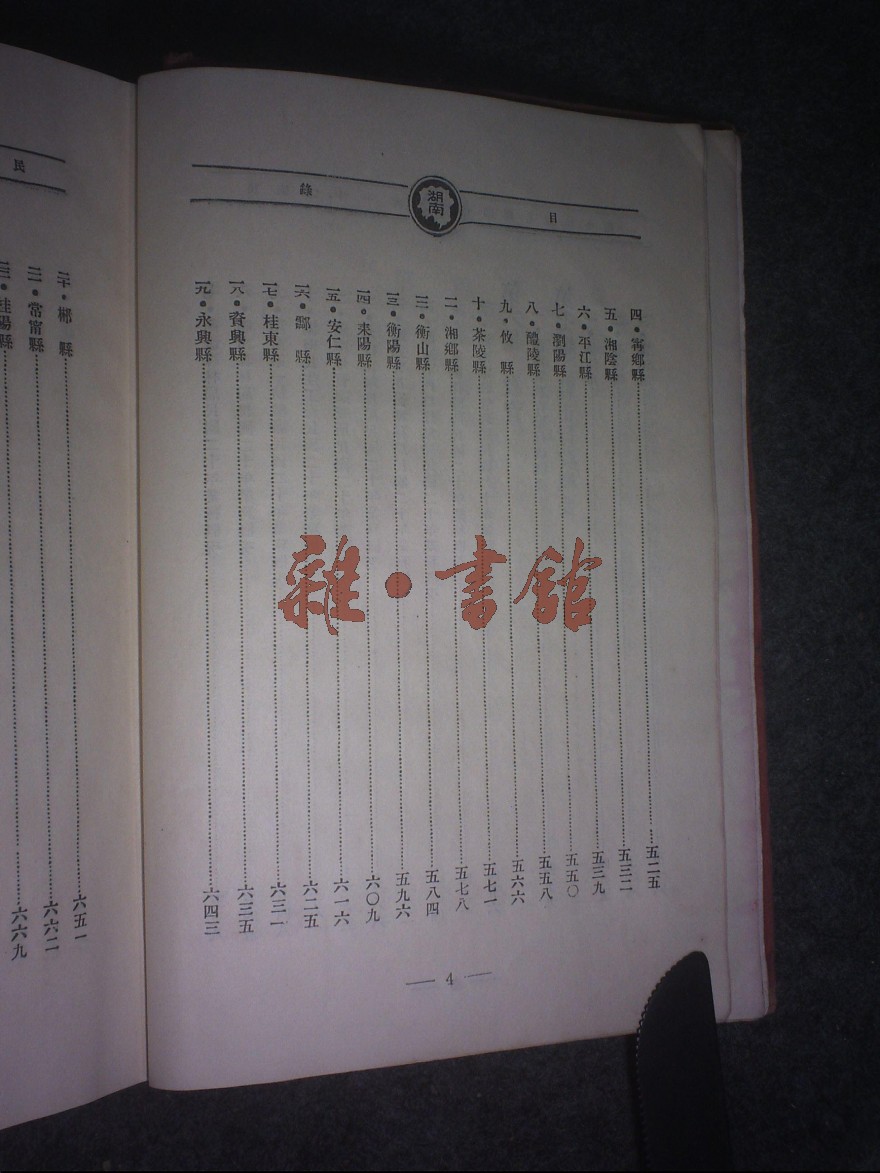 目
湖南
錄
四・寧鄉縣……五二五
五・湘陰縣……五三二
六・平江縣……五三九
七・瀏陽縣……五五〇
八・醴陵縣……五五八
九・攸　縣……五六六
十・茶陵縣……五七一
一一・湘鄉縣……五七八
一二・衡山縣……五八四
一三・衡陽縣……五九六
一四・耒陽縣……六〇九
一五・安仁縣……六一六
一六・酃　縣……六二五
一七・桂東縣……六三一
一八・資興縣……六三五
一九・永興縣……六四三
— 4 —
民
二十・郴　縣……六五一
二一・常甯縣……六六二
二二・桂陽縣……六六九
雜・書館